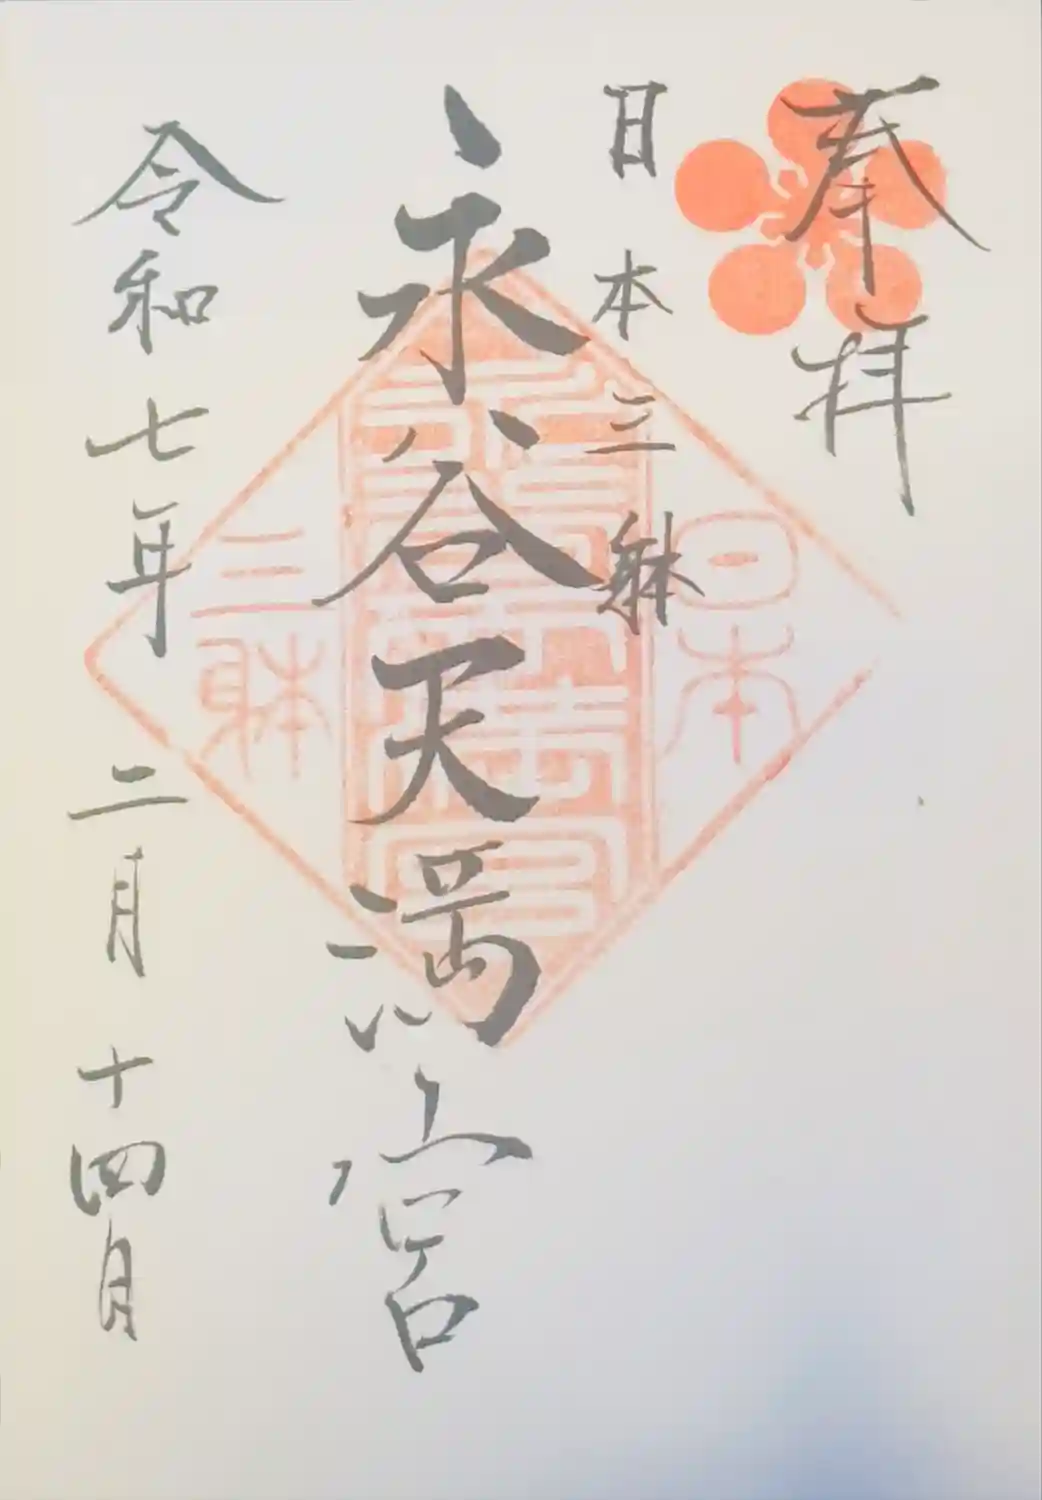 奉拝
日本三躰
永谷天満宮
令和七年二月十四日
日本
三躰